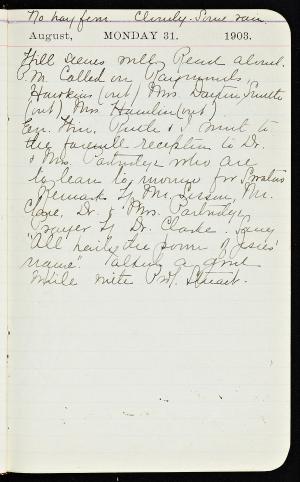 No hay fever. Cloudy. Some rain.
August, MONDAY 31. 1903.
Will seems well. Read aloud.
P.M. Called on Raymonds,
Hawkins (out) Mrs. Smith
(out) Mrs. Hamlin (out)
Ev. Will, & I went to
the farewell reception to Dr.
& Mrs. Partridge who are
to leave to-morrow for
Remarks by Mr. Mr.
Dr. & Mrs. Partridge
Prayer by Dr. Clarke. Sang
"All hail the power of Jesus'
name". Talked a good
while with Prof. Stuart.